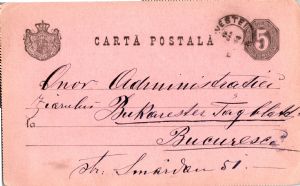 CARTĂ POSTALĂ
5
Onor Administratiei
Ziarului Bukarester Tagblatt
la
Bucuresci
str. Smârdan 51.